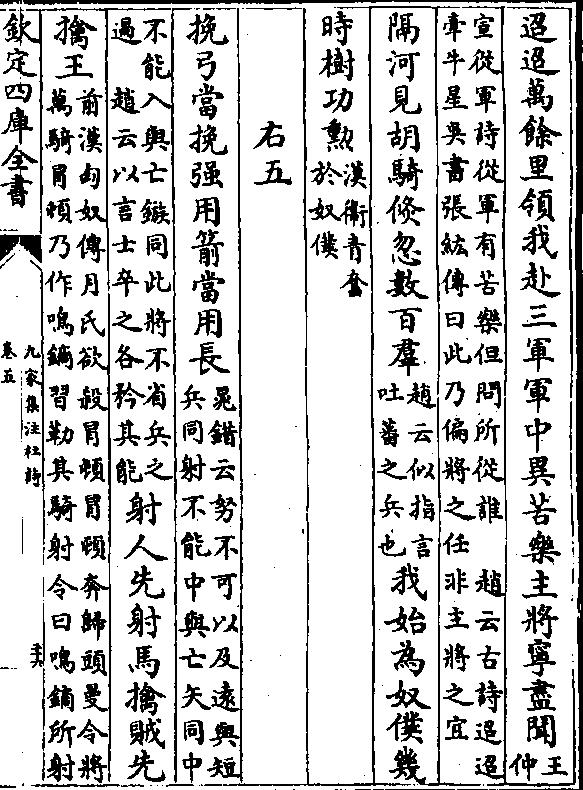 迢迢萬餘里領我赴三軍軍中異苦樂主將寧盡聞王仲
宣從軍詩從軍有苦樂但問所從誰　趙云古詩迢迢
牽牛星吳書張紘傳曰此乃偏將之任非主將之宜
隔河見胡騎倐忽數百羣趙云似指言
吐蕃之兵也我始為奴僕幾
時樹功勲漢衛青奮
於奴僕
右五
挽弓當挽强用箭當用長晁錯云努不可以及遠與短
兵同射不能中與亡矢同中
不能入與亡鏃同此將不省兵之
過　趙云以言士卒之各矜其能射人先射馬擒賊先
擒王前漢匈奴傳月氏欲殺冒頓冒頓奔歸頭曼令將
萬騎冒頓乃作鳴鏑習勒其騎射令曰鳴鏑所射
欽定四庫全書
九家集注杜詩
卷五